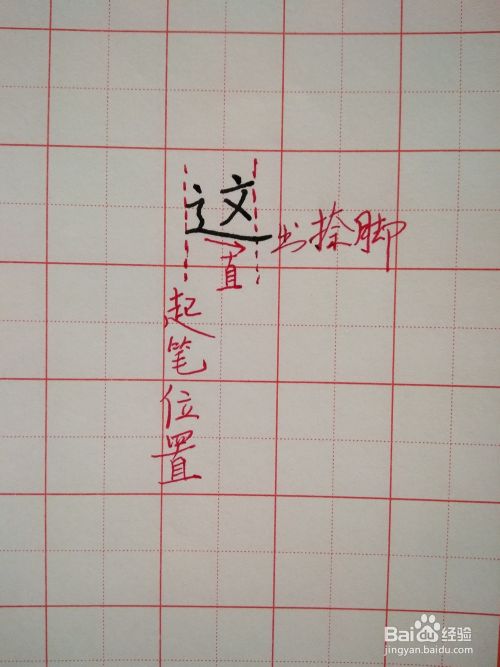 这
出捺脚
直
起笔位置
Bai du 经验
jingyan.baidu.com